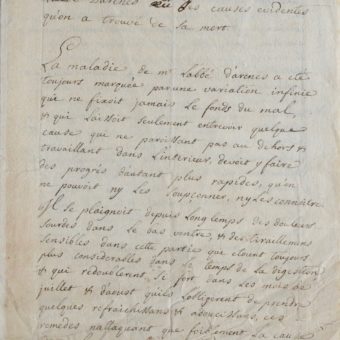 d'arènes ou des causes évidentes
qu'on a trouvé de sa mort.
La maladie de mr Labbé d'arenes a ete
toujours marquée par une variation infinie
qui ne fixoit jamais le fonds du mal
& qui laissoit seulement entrevoir quelque
cause qui ne paroissant pas au dehors &
travaillant dans L'interieur, devoit y faire
des progrès dautant plus rapides, qu'on
ne pouvoit ny Les soupçonner, ny Les connoitre
Il se plaignoit depuis Longtemps des douleurs
sourdes dans Le bas ventre, & des tiraillemens
sensibles dans cette partie que etoient toujours
plus considerables dans Le temps de La digestion
& qui redoublerent si fort dans Les mois de
juillet & d'aoust qu'ils L'obligerent de prendre
quelques rafraichissans & adoucissans, ces
remedes n'attaquant que foiblement La cause